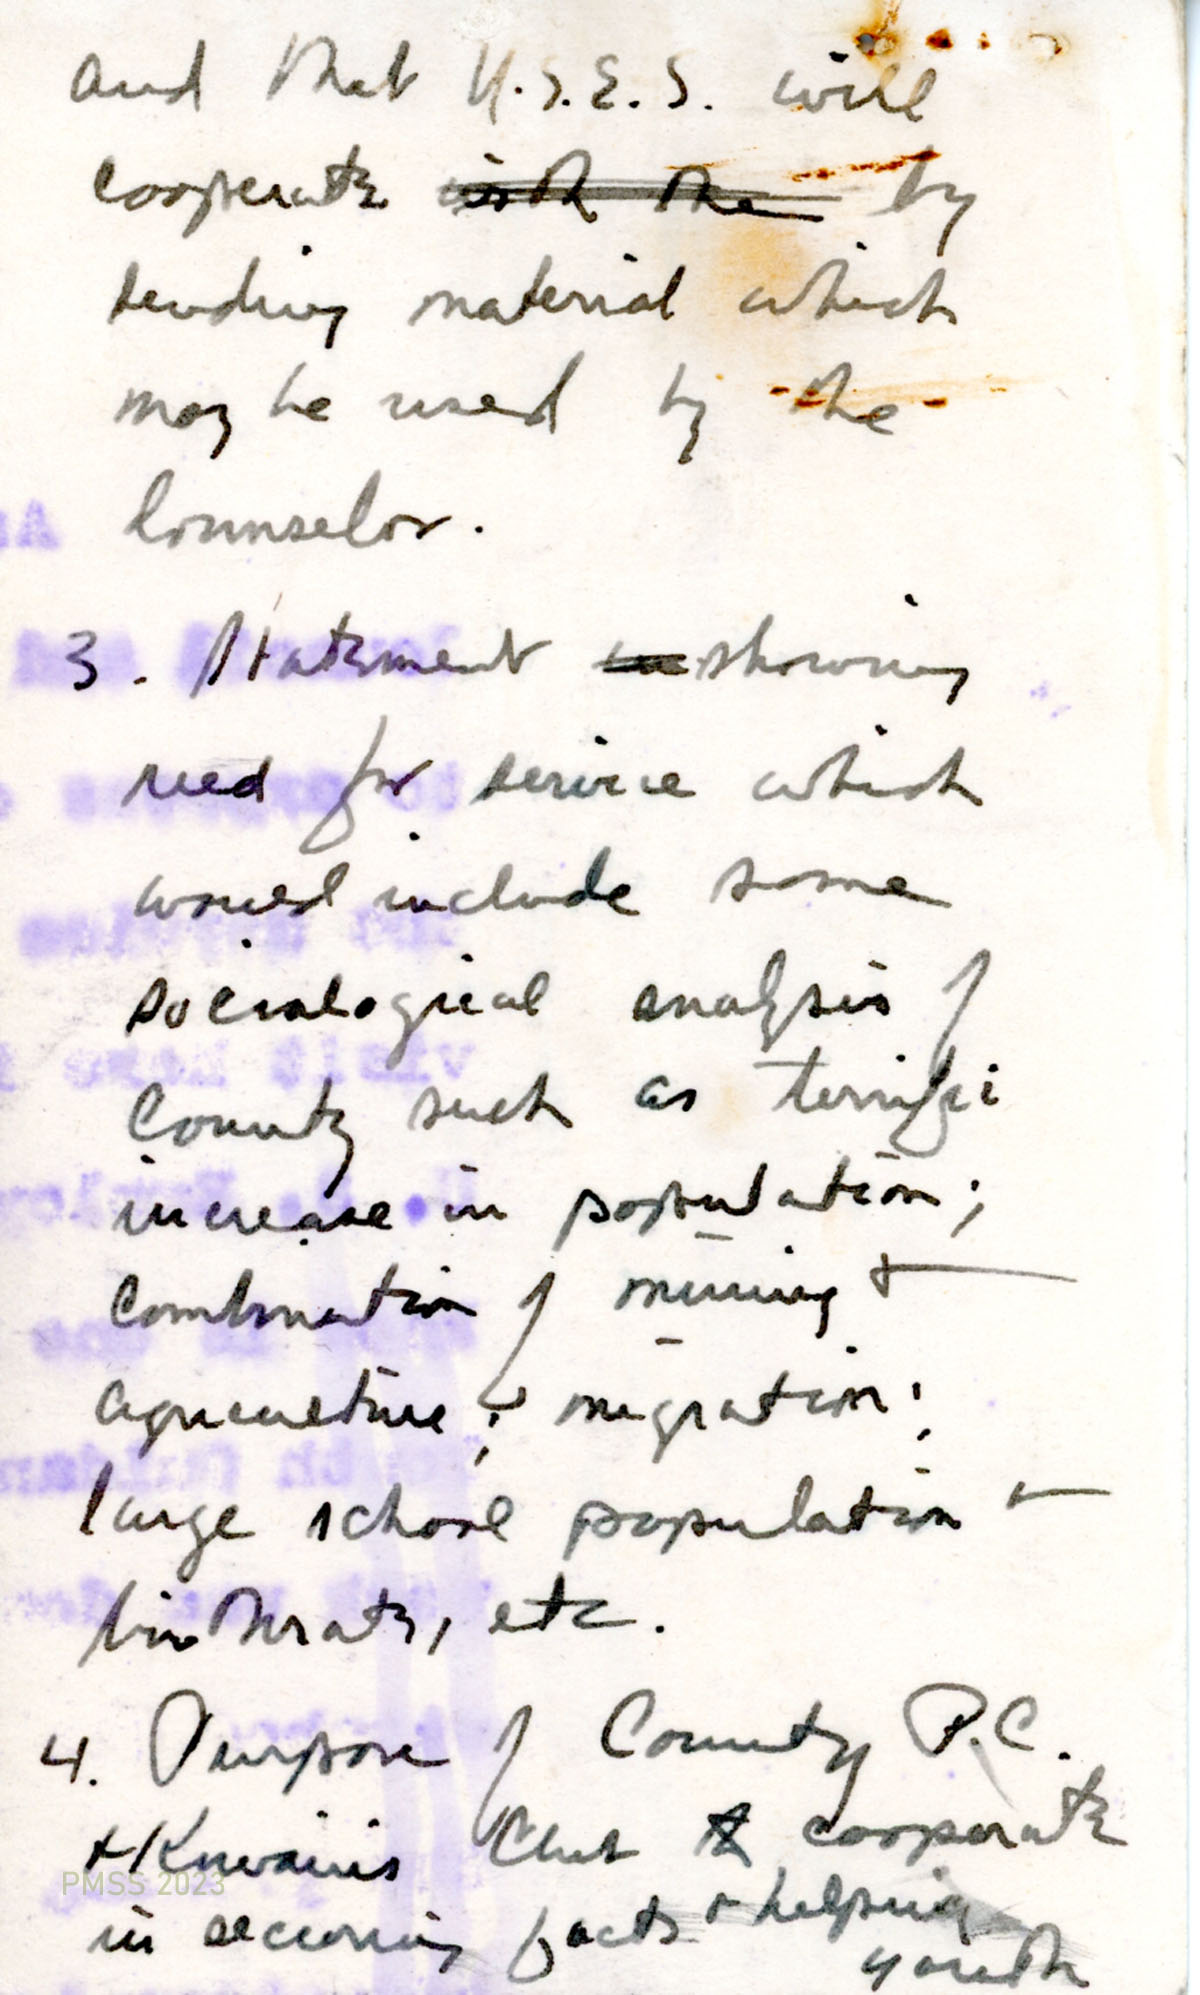 and that U.S.E.S. will
cooperate with the by
sending material which
may be used by the
Counselor.
3. Statement showing
need for service which
would include some
sociological analysis of
County such as terrific
increase in population;
Combination of mining +
agriculture; migration;
large school population +
birthrate, etc.
4. Purpose of County P.C.
+ Kiwanis Club to cooperate
PMSS 2023
in securing facts + helping
youth